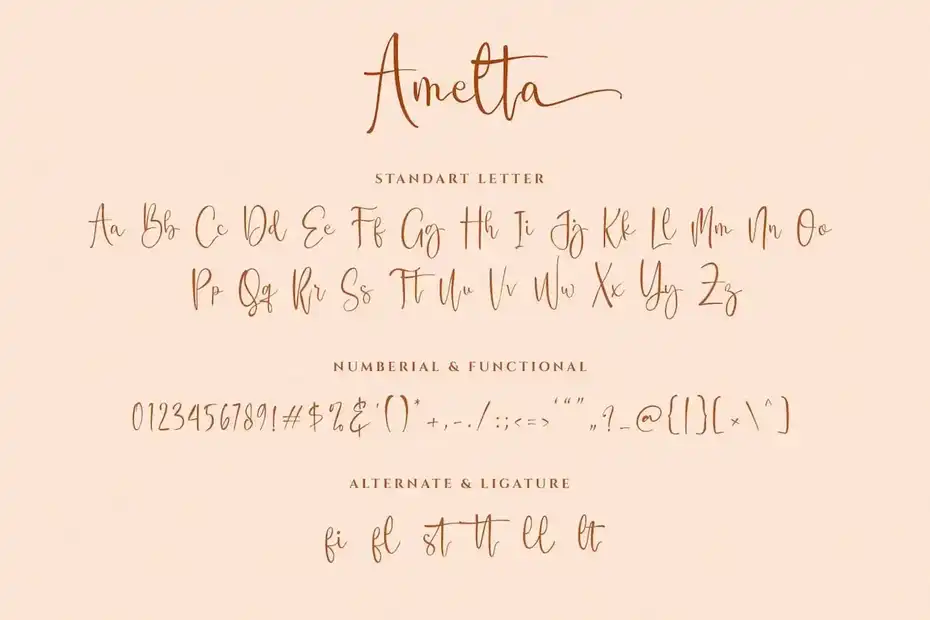 Amelta
STANDART LETTER
Aa Bb Cc Dd Ee Ff Gg Hh Ii Jj Kk Ll Mm Nn Oo
Pp Qq Rr Ss Tt Uu Vv Ww Xx Yy Zz
NUMBERIAL & FUNCTIONAL
0123456789!#$%&'()*+,-./:;<=>‘“”„?_@{|}[×\^]
ALTERNATE & LIGATURE
fi fl st tt ll lt